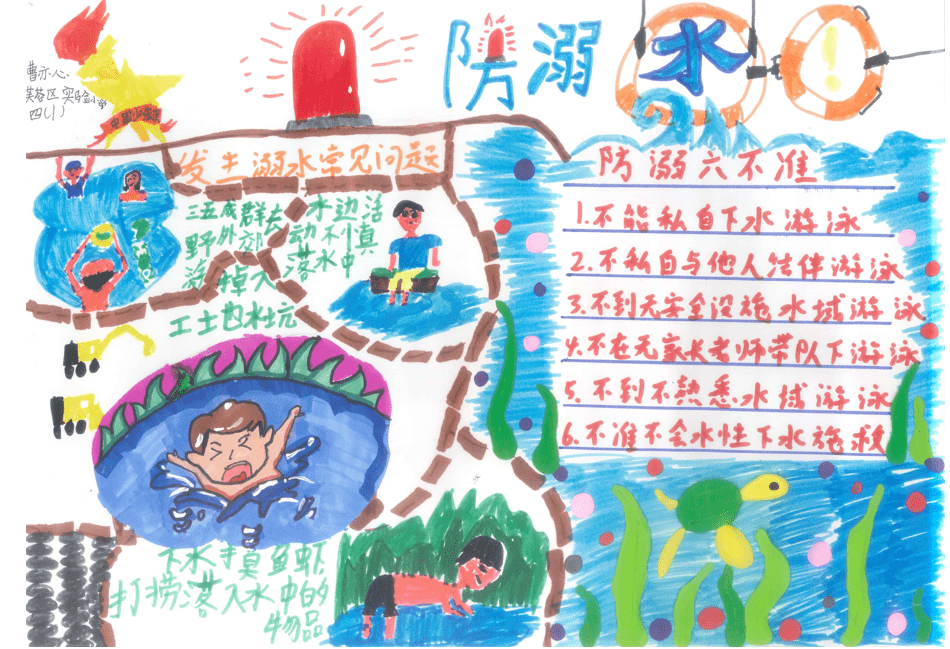 曹亦心
芙蓉区实验小学
四(1)
防溺水!
发生溺水常见问题
三五成群去
野外郊
游
水边活
动不慎
落水中
掉入
水坑
下水摸鱼虾
打捞落入水中的
物品
防溺六不准
1.不能私自下水游泳
2.不私自与他人结伴游泳
3.不到无安全设施水域游泳
4.不在无家长老师带队下游泳
5.不到不熟悉水域游泳
6.不准不会水性下水施救